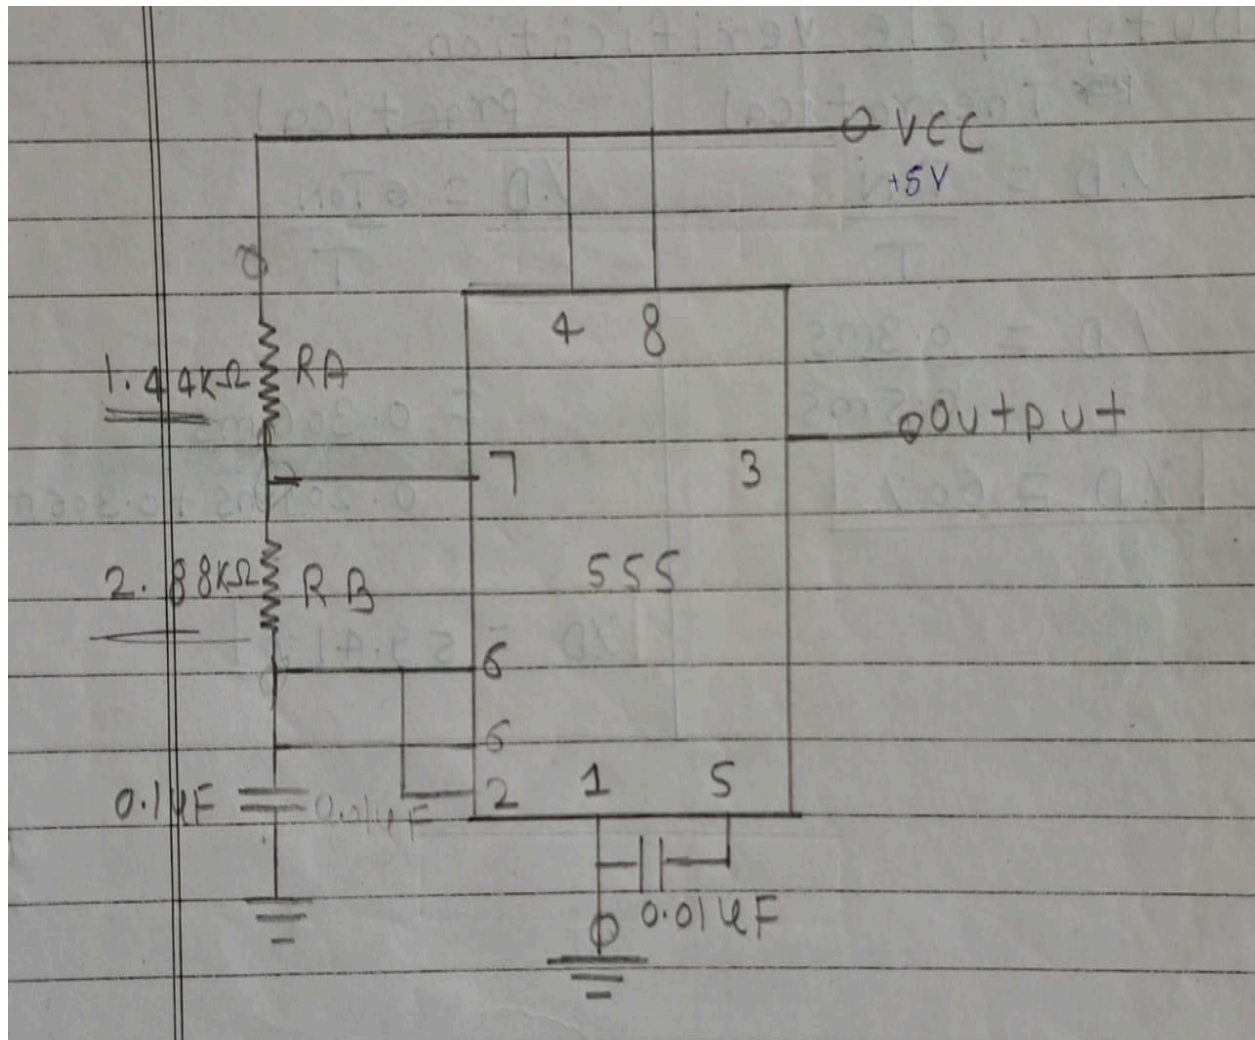 VCC
+5V
4 8
1.44KΩ RA
Output
7 3
555
2.88KΩ RB
6
6
0.1µF 0.01µF 2 1 5
0.01µF